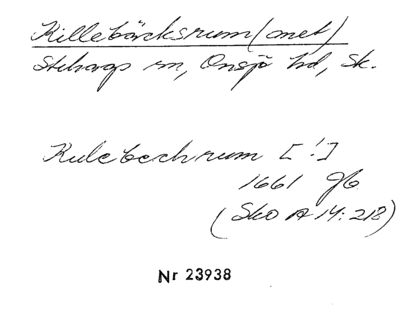 Killebäcksrum(met)
Stehags sn, Onsjö hd, Sk.
Kulebechrum [!]
1661 Jb
(Sko A 14:218)
Nr 23938